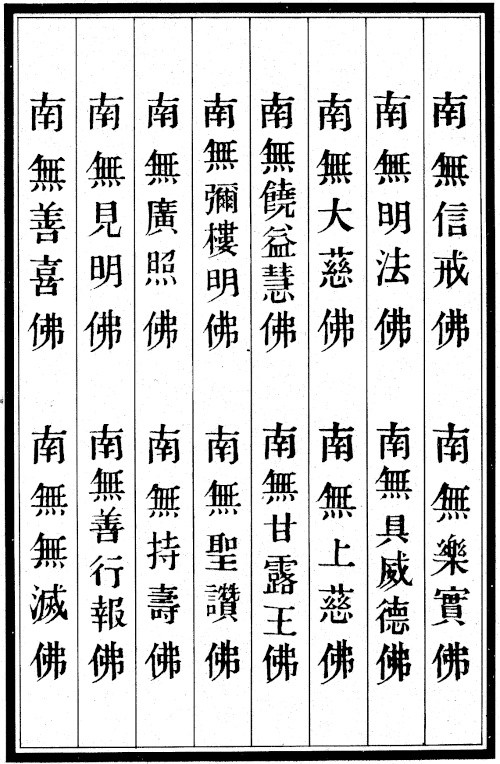 南無信戒佛　南無樂實佛
南無明法佛　南無具威德佛
南無大慈佛　南無上慈佛
南無饒益慧佛　南無甘露王佛
南無彌樓明佛　南無聖讚佛
南無廣照佛　南無持壽佛
南無見明佛　南無善行報佛
南無善喜佛　南無無滅佛